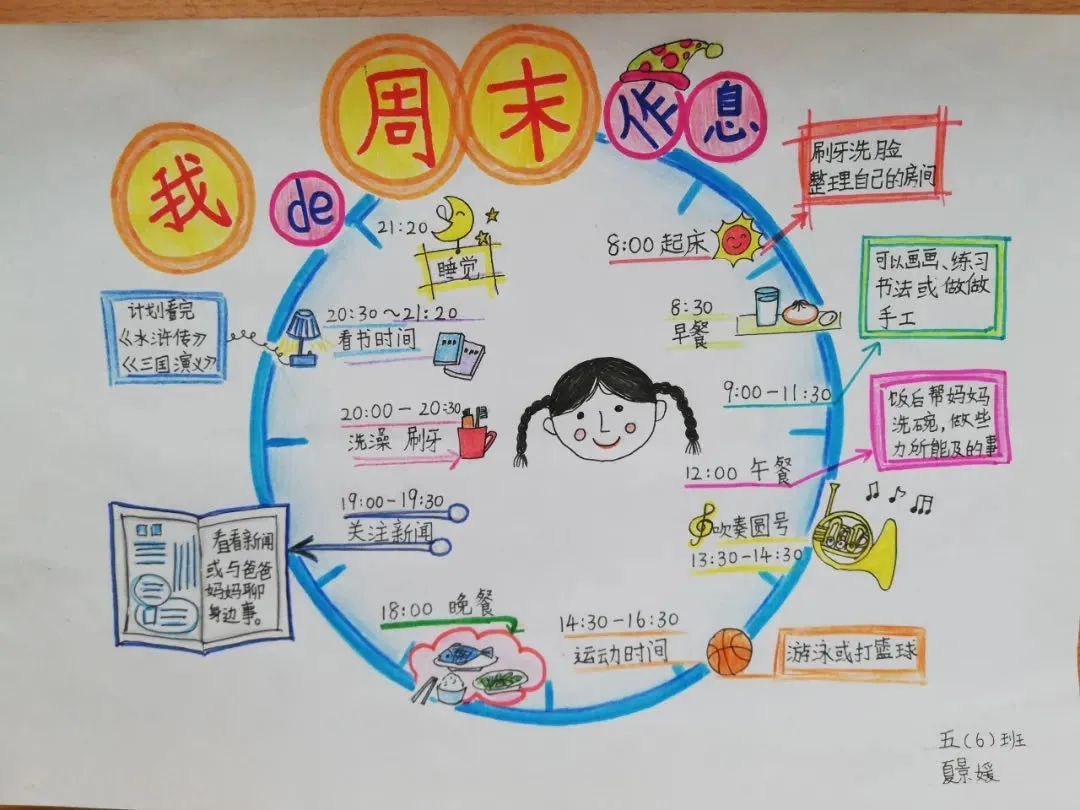 我de周末作息
8:00 起床
刷牙洗脸
整理自己的房间
8:30
早餐
9:00-11:30
可以画画、练习
书法或做做
手工
12:00 午餐
饭后帮妈妈
洗碗,做些
力所能及的事
吹奏圆号
13:30-14:30
14:30-16:30
运动时间
游泳或打篮球
18:00 晚餐
19:00-19:30
关注新闻
看看新闻
或与爸爸
妈妈聊
身边事。
20:00-20:30
洗澡 刷牙
20:30~21:20
看书时间
计划看完
《水浒传》
《三国演义》
21:20
睡觉
五(6)班
夏景媛